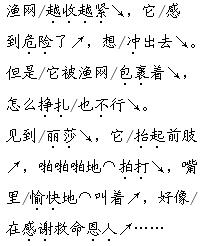 渔网/越收越紧↘，它/感
到危险了↗，想/冲出去↘。
但是/它被渔网/包裹着↘，
怎么挣扎/也不行↘。
见到/丽莎↘，它/抬起前肢
↗，啪啪啪地⌒拍打↘，嘴
里/愉快地⌒叫着↗，好像/
在感谢救命恩人↗……